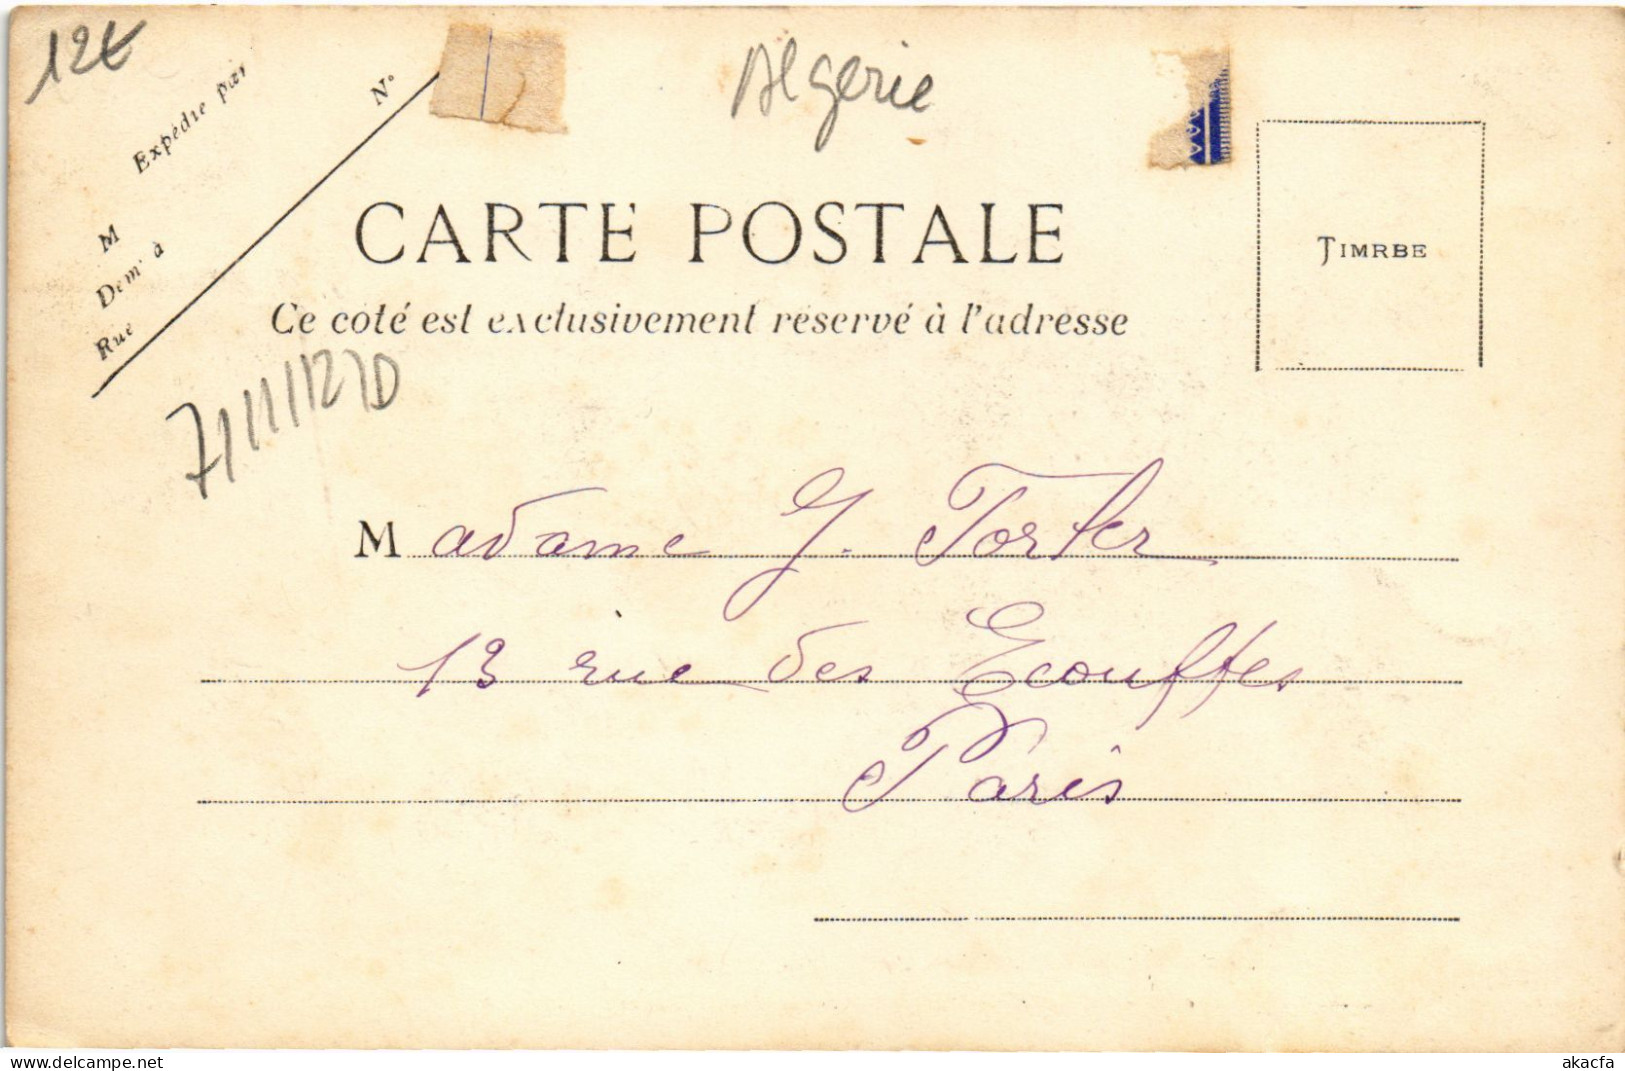 12€
Algerie
Expédie par
N°
M
Dem' à
Rue
CARTE POSTALE
TIMRBE
Ce coté est exclusivement réservé à l'adresse
Madame J.
13 rue des Ecouffes
Paris
delcampe.net
akacfa